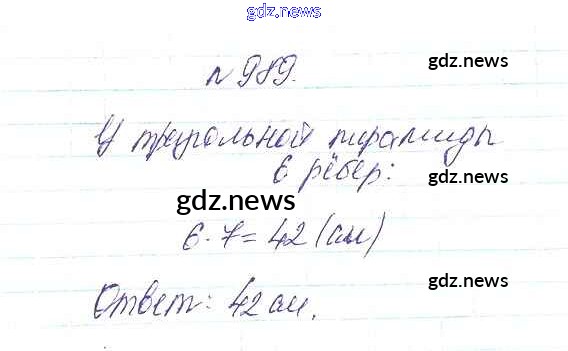 gdz.news
gdz.news
№989.
У треугольной пирамиды
6 рёбер:
gdz.news
gdz.news
6·7=42 (см)
gdz.news
Ответ: 42 см.